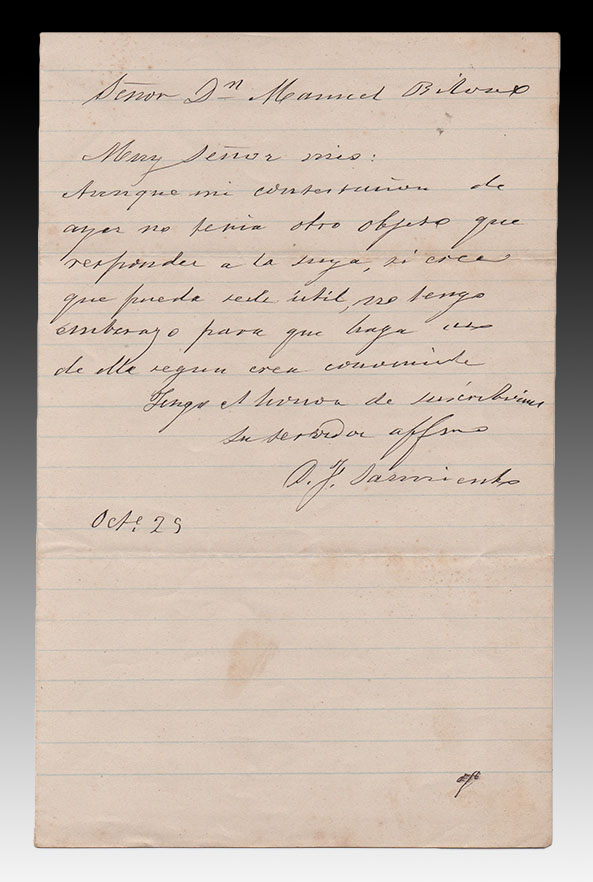 Señor Dn Manuel Bilbao
Muy Señor mio:
Aunque mi contestacion de
ayer no tenia otro objeto que
responder a la suya, si cree
que pueda serle util, no tengo
embarazo para que haga uso
de ella segun crea conveniente
Tengo el honor de suscribirme
su servidor affmo
D. F. Sarmiento
Octe. 29